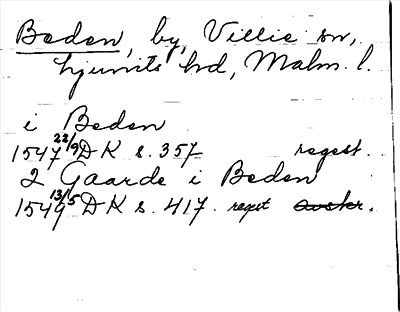 Beden, by, Villie sn,
Ljunits hd, Malm. l.
i Beden
1547 22/9 DK s. 357 regest.
2 Gaarde i Beden
1549 13/5 DK s. 417. regest